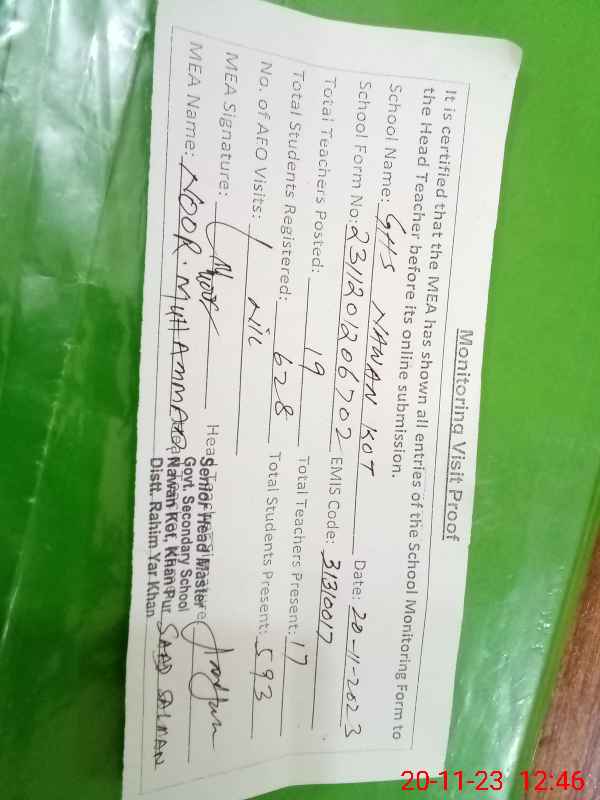 Monitoring Visit Proof
It is certified that the MEA has shown all entries of the School Monitoring Form to
the Head Teacher before its online submission.
School Name: GHS NAWAN KOT Date: 20-11-2023
School Form No: 2311201206702 EMIS Code: 31310017
Total Teachers Posted: 19 Total Teachers Present: 17
Total Students Registered: 628 Total Students Present: 593
No. of AEO Visits: NIL
MEA Signature: Head Teacher
MEA Name: NOOR MUHAMMAD SAAD SALMAN
Senior Head Master
Govt. Secondary School
Nawan Kot, Khan Pur
Distt. Rahim Yar Khan
20-11-23 12:46